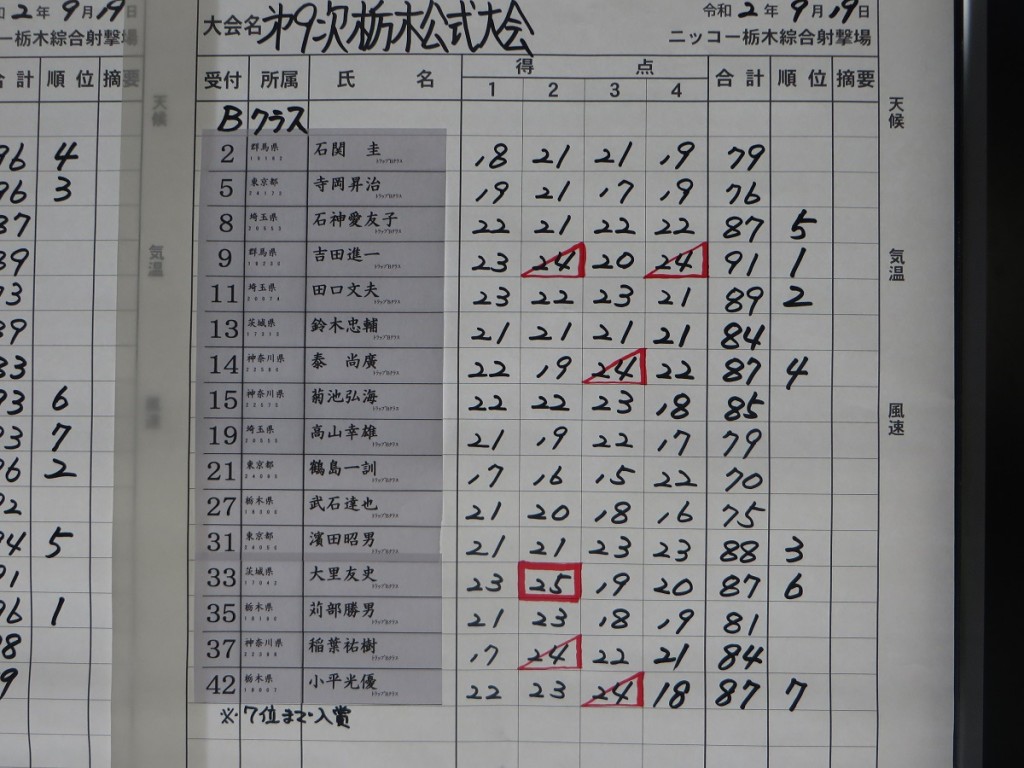 和 2 年 9 月 19 日
大会名 第9次栃木公式大会
令和 2 年 9 月 19 日
ニッコー栃木綜合射撃場
ー栃木綜合射撃場
合計 順位 摘要
受付 所属 氏 名 得 点 1 2 3 4 合計 順位 摘要
天候
天候
Bクラス
96 4
2 群馬県 石関 圭 18 21 21 19 79
96 3
5 東京都 寺岡昇治 19 21 17 19 76
87
8 埼玉県 石神愛友子 22 21 22 22 87 5
気温
89
9 群馬県 吉田進一 23 24 20 24 91 1
気温
93
11 埼玉県 田口文夫 23 22 23 21 89 2
89
13 茨城県 鈴木忠輔 21 21 21 21 84
83
14 神奈川県 泰 尚廣 22 19 24 22 87 4
93 6
15 神奈川県 菊池弘海 22 22 23 18 85
風速
風速
93 7
19 埼玉県 高山幸雄 21 19 22 17 79
96 2
21 東京都 鶴島一訓 17 16 15 22 70
92
27 栃木県 武石達也 21 20 18 16 75
94 5
31 東京都 濱田昭男 21 21 23 23 88 3
91
33 茨城県 大里友史 23 25 19 20 87 6
96 1
35 栃木県 苅部勝男 21 23 18 19 81
98
37 神奈川県 稲葉祐樹 17 24 22 21 84
9
42 栃木県 小平光優 22 23 24 18 87 7
※7位まで入賞